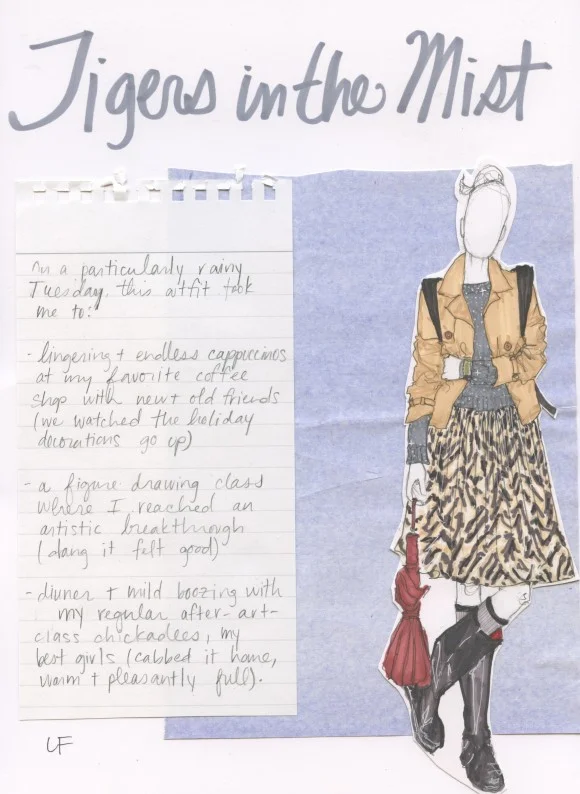 Tigers in the Mist
On a particularly rainy
Tuesday, this outfit took
me to:
- lingering + endless cappuccinos
at my favorite coffee
shop with new + old friends
(we watched the holiday
decorations go up)
- a figure drawing class
where I reached an
artistic breakthrough
(dang it felt good)
- dinner + mild boozing with
my regular after-art-
class chickadees, my
best girls (cabbed it home,
warm + pleasantly full).
LF